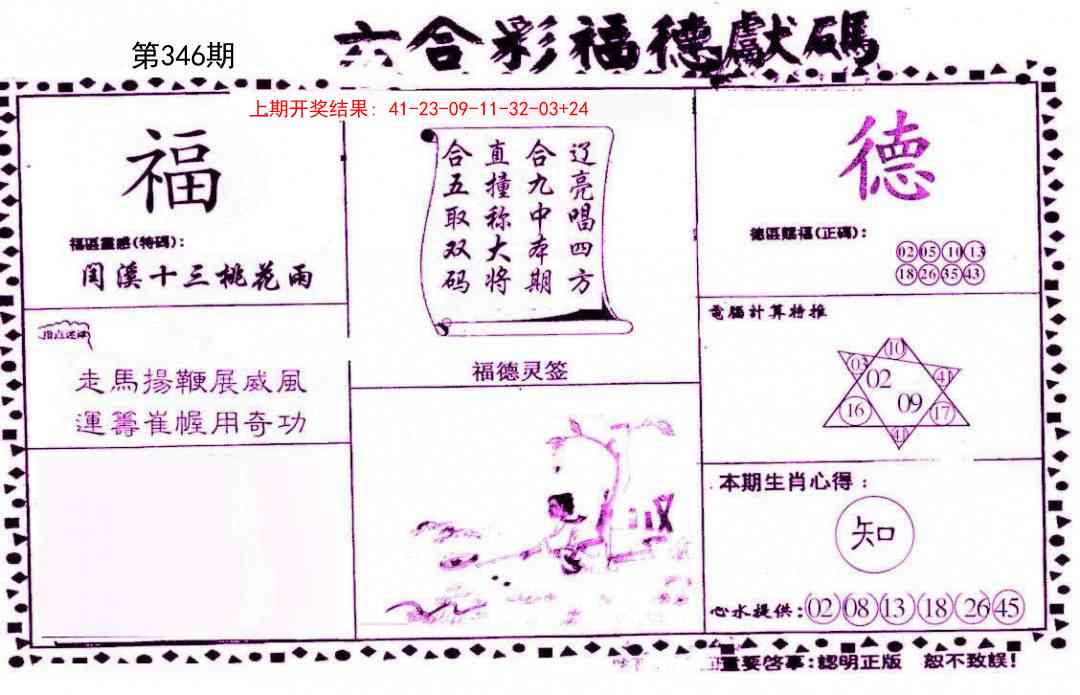 六合彩福德獻碼
第346期
上期开奖结果：41-23-09-11-32-03+24
福
福區靈感(特碼)：
閏溪十三桃花雨
走馬揚鞭展威風
運籌崔幄用奇功
辽亮唱四方
合九中本期
直撞称大将
合五取双码
福德灵签
德
德區賜福(正碼)：
02 05 10 13
18 26 35 43
電腦計算特推
10
03 02 41
16 09 17
41
本期生肖心得：
知
心水提供：02 08 13 18 26 45
重要啓事：認明正版 恕不致誤！